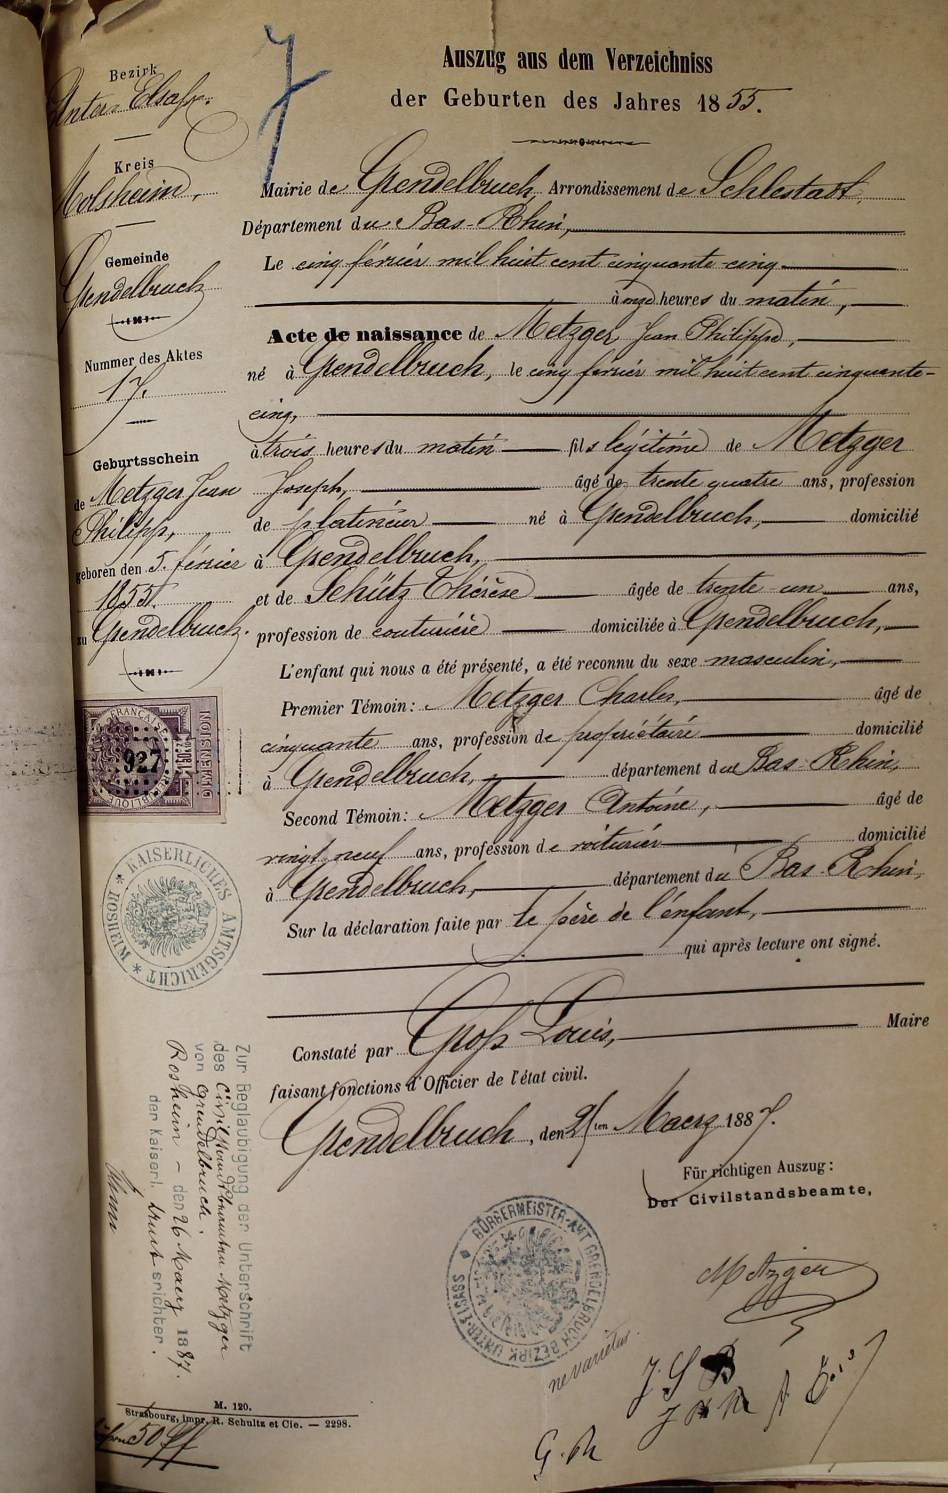 Bezirk
Unter-Elsass.
Kreis
Molsheim,
Gemeinde
Grendelbruch
Nummer des Aktes
17.
Geburtsschein
de Metzger Jean
Philipp,
geboren den 5. février
1855.
zu Grendelbruch.
FRANÇAISE
RÉPUBLIQUE
927
KAISERLICHES AMTSGERICHT * ROSHEIM *
Zur Beglaubigung der Unterschrift
des Civilstandsbeamten Metzger
von Grendelbruch.
Rosheim - den 26 Maerz 1887.
der Kaiserl. Amtsrichter.
M. 120.
Strasbourg, impr. R. Schultz et Cie. — 2298.
50
Auszug aus dem Verzeichniss
der Geburten des Jahres 1855.
Mairie de Grendelbruch, Arrondissement de Schlestadt,
Département du Bas-Rhin,
Le cinq février mil huit cent cinquante-cinq
à onze heures du matin,
Acte de naissance de Metzger Jean Philippe,
né à Grendelbruch, le cinq février mil huit cent cinquante-
cinq,
à trois heures du matin fils légitime de Metzger
Joseph, âgé de trente quatre ans, profession
de platineur né à Grendelbruch, domicilié
à Grendelbruch,
et de Schütz Thérèse âgée de trente un ans,
profession de couturière domiciliée à Grendelbruch,
L'enfant qui nous a été présenté, a été reconnu du sexe masculin,
Premier Témoin: Metzger Charles, âgé de
cinquante ans, profession de propriétaire domicilié
à Grendelbruch, département du Bas-Rhin,
Second Témoin: Metzger Antoine, âgé de
vingt neuf ans, profession de voiturier domicilié
à Grendelbruch, département du Bas-Rhin,
Sur la déclaration faite par le père de l'enfant,
qui après lecture ont signé.
Constaté par Groß Louis, Maire
faisant fonctions d'Officier de l'état civil.
Grendelbruch, den 25ten Maerz 1887.
Für richtigen Auszug:
Der Civilstandsbeamte,
Metzger
BÜRGERMEISTER-AMT GRENDELBRUCH BEZIRK UNTER-ELSASS
ne varietur.
J S B
G. M